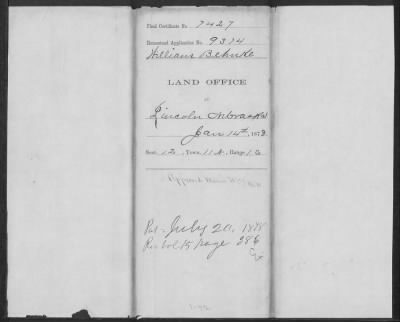 Final Certificate No. 7427
Homestead Application No. 9374
William Behnke
LAND OFFICE
at
Lincoln Nebraska
Jan 14th, 1878.
Sect. 12, Town. 11 N, Range 1 E
Approved
Pat. July 20, 1878
Rec Vol 15 Page 286